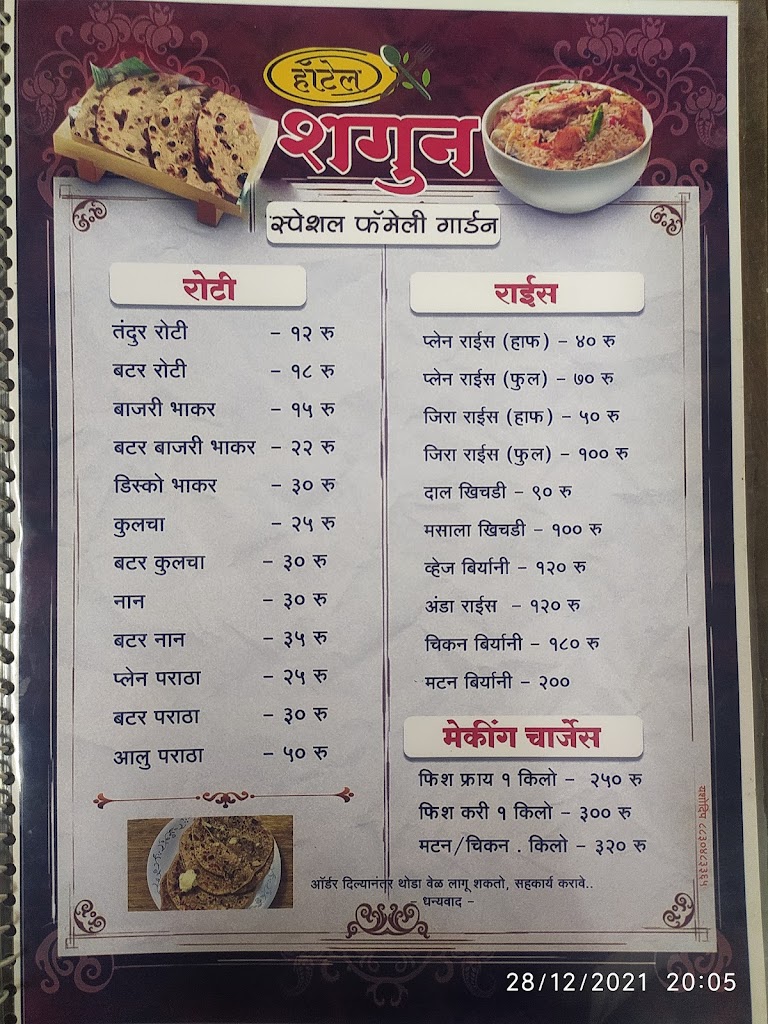 हॉटेल
शगुन
स्पेशल फॅमेली गार्डन
रोटी
तंदुर रोटी - १२ रु
बटर रोटी - १८ रु
बाजरी भाकर - १५ रु
बटर बाजरी भाकर - २२ रु
डिस्को भाकर - ३० रु
कुलचा - २५ रु
बटर कुलचा - ३० रु
नान - ३० रु
बटर नान - ३५ रु
प्लेन पराठा - २५ रु
बटर पराठा - ३० रु
आलु पराठा - ५० रु
राईस
प्लेन राईस (हाफ) - ४० रु
प्लेन राईस (फुल) - ७० रु
जिरा राईस (हाफ) - ५० रु
जिरा राईस (फुल) - १०० रु
दाल खिचडी - ९० रु
मसाला खिचडी - १०० रु
व्हेज बिर्यानी - १२० रु
अंडा राईस - १२० रु
चिकन बिर्यानी - १८० रु
मटन बिर्यानी - २००
मेकींग चार्जेस
फिश फ्राय १ किलो - २५० रु
फिश करी १ किलो - ३०० रु
मटन/चिकन . किलो - ३२० रु
ऑर्डर दिल्यानंतर थोडा वेळ लागू शकतो, सहकार्य करावे..
- धन्यवाद -
28/12/2021 20:05